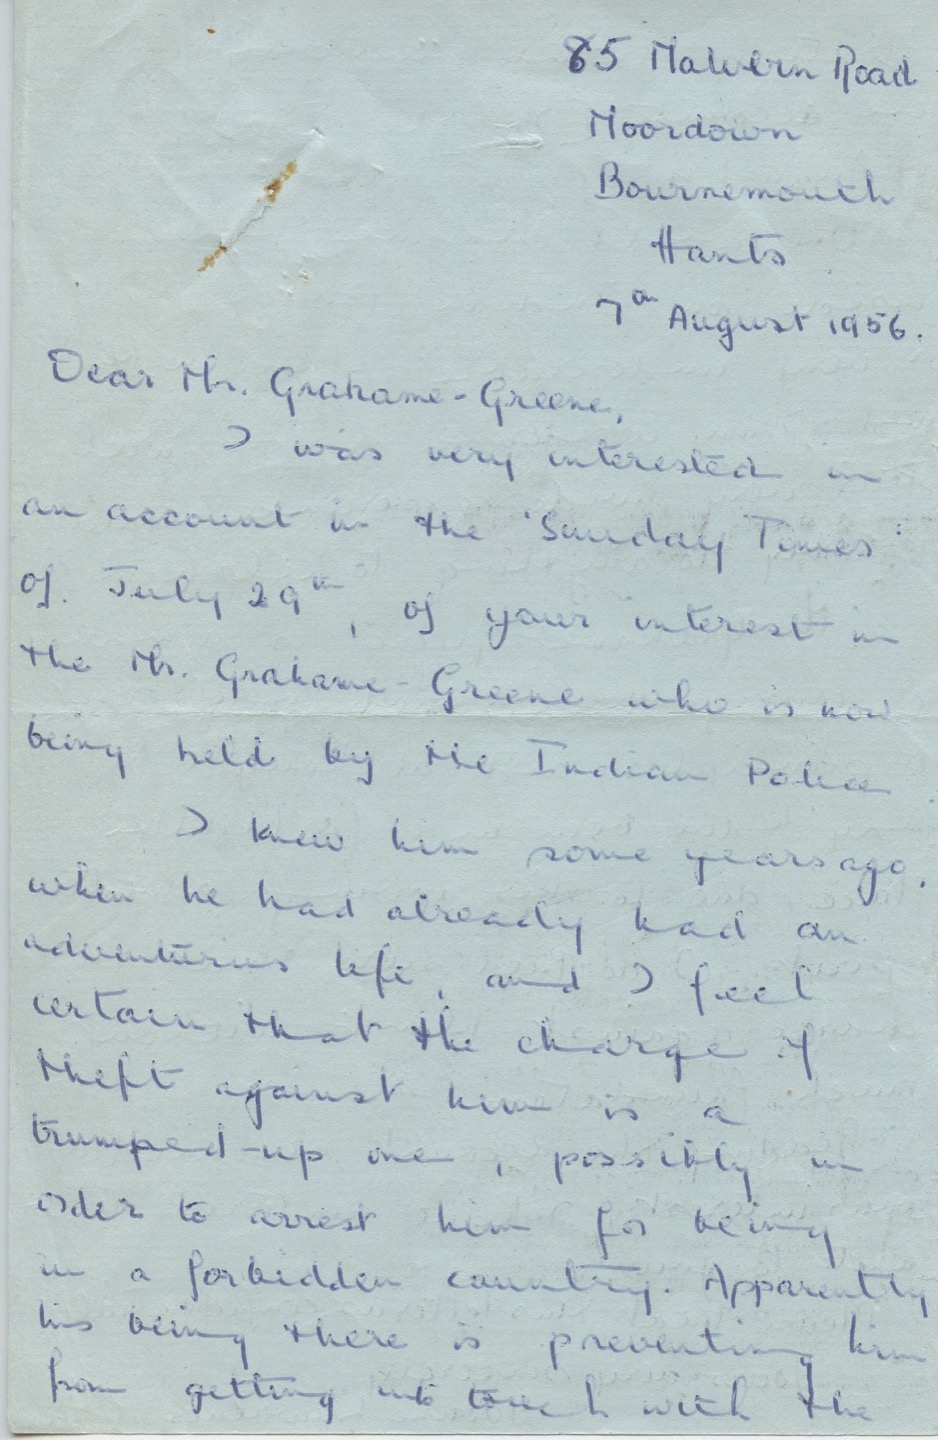 85 Malvern Road
Moordown
Bournemouth
Hants
7th August 1956.
Dear Mr. Grahame-Greene,
I was very interested in
an account in the 'Sunday Times'
of July 29th, of your interest in
the Mr. Grahame-Greene who is now
being held by the Indian Police.
I knew him some years ago,
when he had already had an
adventurus life, and I feel
certain that the charge of
theft against him is a
trumped-up one, possibly in
order to arrest him for being
in a forbidden country. Apparently
his being there is preventing him
from getting into touch with the